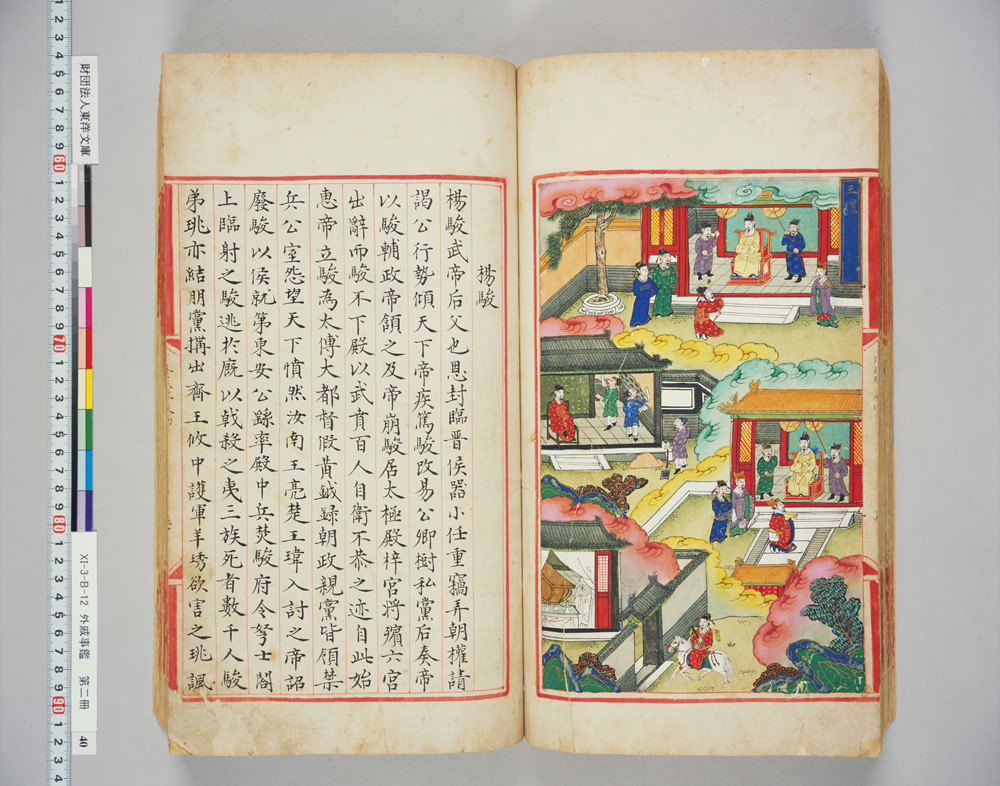 王
楊駿
楊駿武帝后父也恩封臨晋侯器小任重竊弄朝權請
謁公行勢傾天下帝疾篤駿改易公卿樹私黨后奏帝
以駿輔政帝頷之及帝崩駿居太極殿梓宫將殯六宫
出辭而駿不下殿以武賁百人自衛不恭之迹自此始
惠帝立駿為太傅大都督假黄鉞録朝政親黨皆領禁
兵公室怨望天下憤然汝南王亮楚王瑋入討之帝詔
廢駿以侯就第東安公繇率殿中兵焚駿府令弩士閣
上臨射之駿逃於廐以戟殺之夷三族死者數千人駿
弟珧亦結朋黨搆出齊王攸中護軍羊琇欲害之珧諷
財団法人東洋文庫
XI-3-B-12 外戚事鑑 第二冊 40
1 2 3 4 5 6 7 8 9 60 1 2 3 4 5 6 7 8 9 70 1 2 3 4 5 6 7 8 9 80 1 2 3 4 5 6 7 8 9 90 1 2 3 4